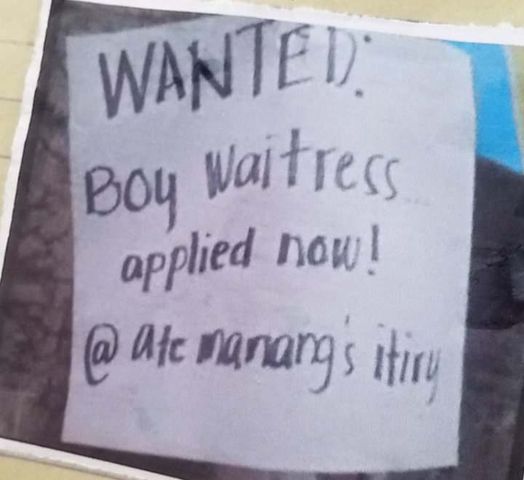 WANTED:
Boy Waitress
applied now!
@ ate manang's itiry